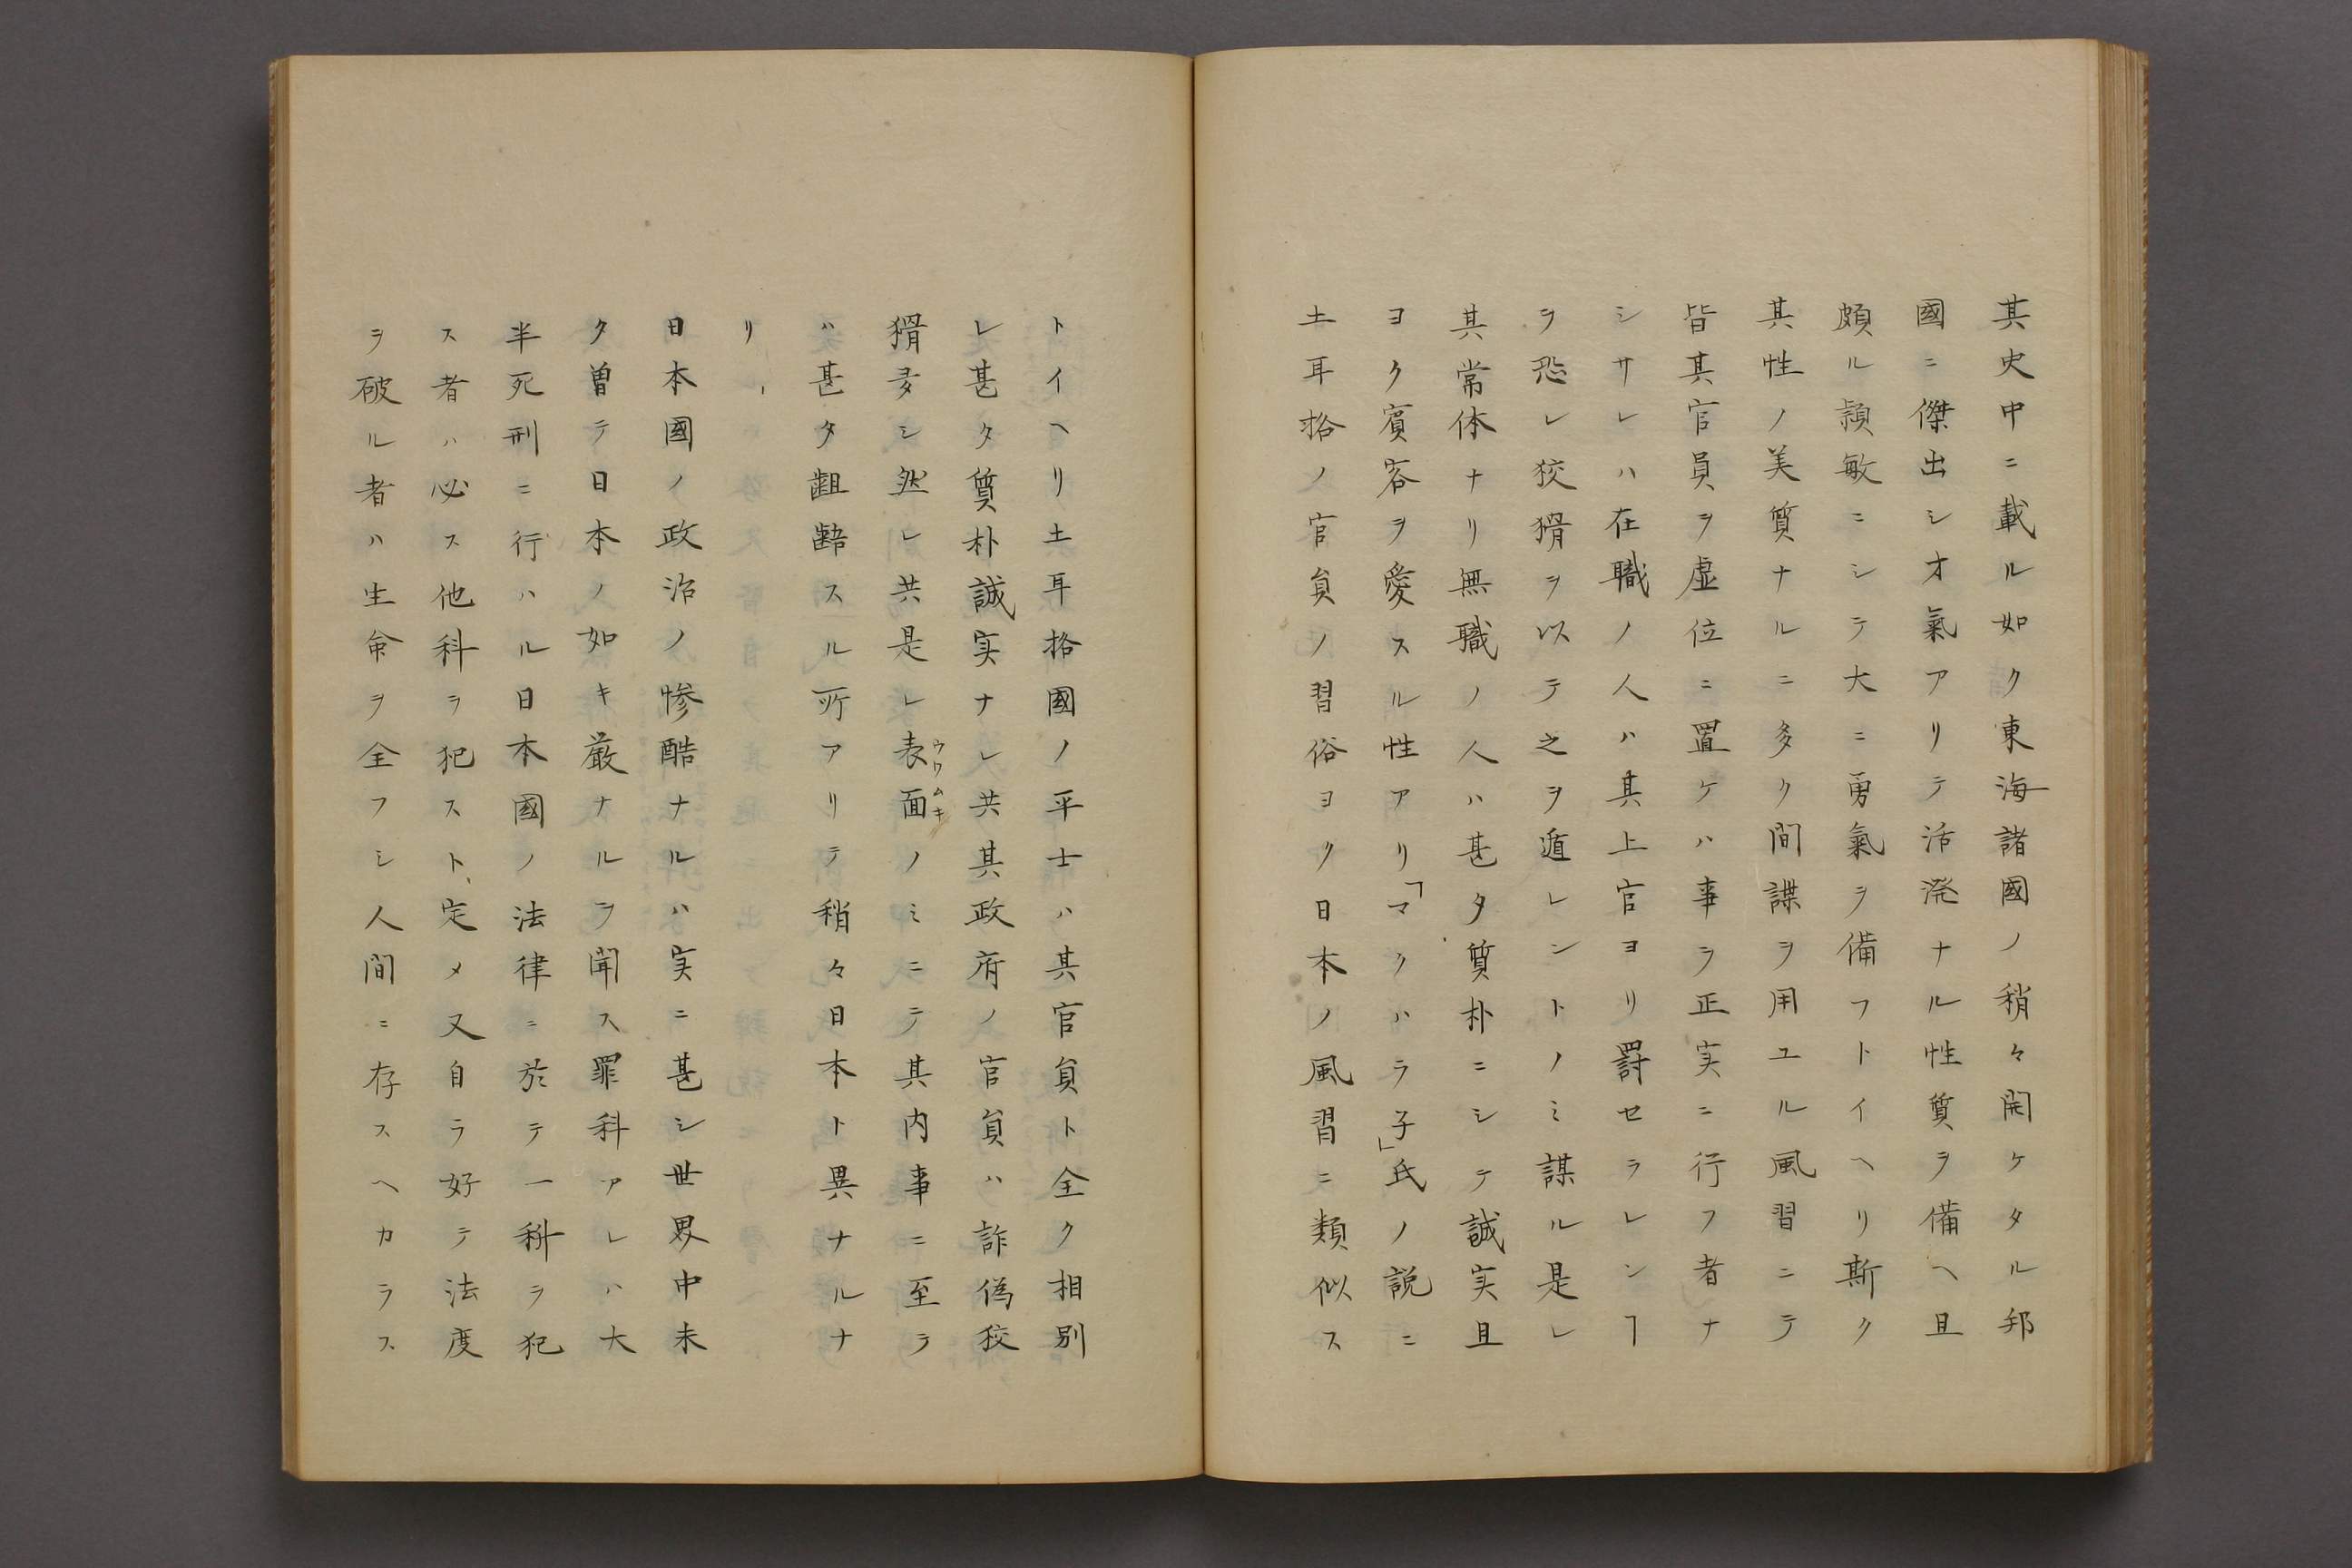 其史中ニ載ル如ク東海諸國ノ稍々開ケタル邦
國ニ傑出シオ氣アリテ活溌ナル性質ヲ備ヘ且
頗ル頴敏ニシテ大ニ勇氣ヲ備フトイヘリ斯ク
其性ノ美質ナルニ多ク間諜ヲ用ユル風習ニテ
皆其官員ヲ虚位ニ置ケハ事ヲ正実ニ行フ者ナ
シサレハ在職ノ人ハ其上官ヨリ罸セラレンヿ
ヲ恐レ狡猾ヲ以テ之ヲ遁レントノミ謀ル是レ
其常体ナリ無職ノ人ハ甚タ質朴ニシテ誠実且
ヨク賓客ヲ愛スル性アリ「マクハラ子」氏ノ説ニ
土耳格ノ官員ノ習俗ヨク日本ノ風習ニ類似ス
トイヘリ土耳格國ノ平士ハ其官員ト全ク相別
レ甚タ質朴誠実ナレ共其政府ノ官員ハ詐偽狡
猾多シ然レ共是レ表面ウワムキノミニテ其内事ニ至ラ
ハ甚タ齟齬スル所アリテ稍々日本ト異ナルナ
リ
日本國ノ政治ノ惨酷ナルハ実ニ甚シ世界中未
タ曽テ日本ノ如キ厳ナルヲ聞ス罪科アレハ大
半死刑ニ行ハル日本國ノ法律ニ於テ一科ヲ犯
ス者ハ必ス他科ヲ犯スト定メ又自ラ好テ法度
ヲ破ル者ハ生命ヲ全フシ人間ニ存スヘカラス